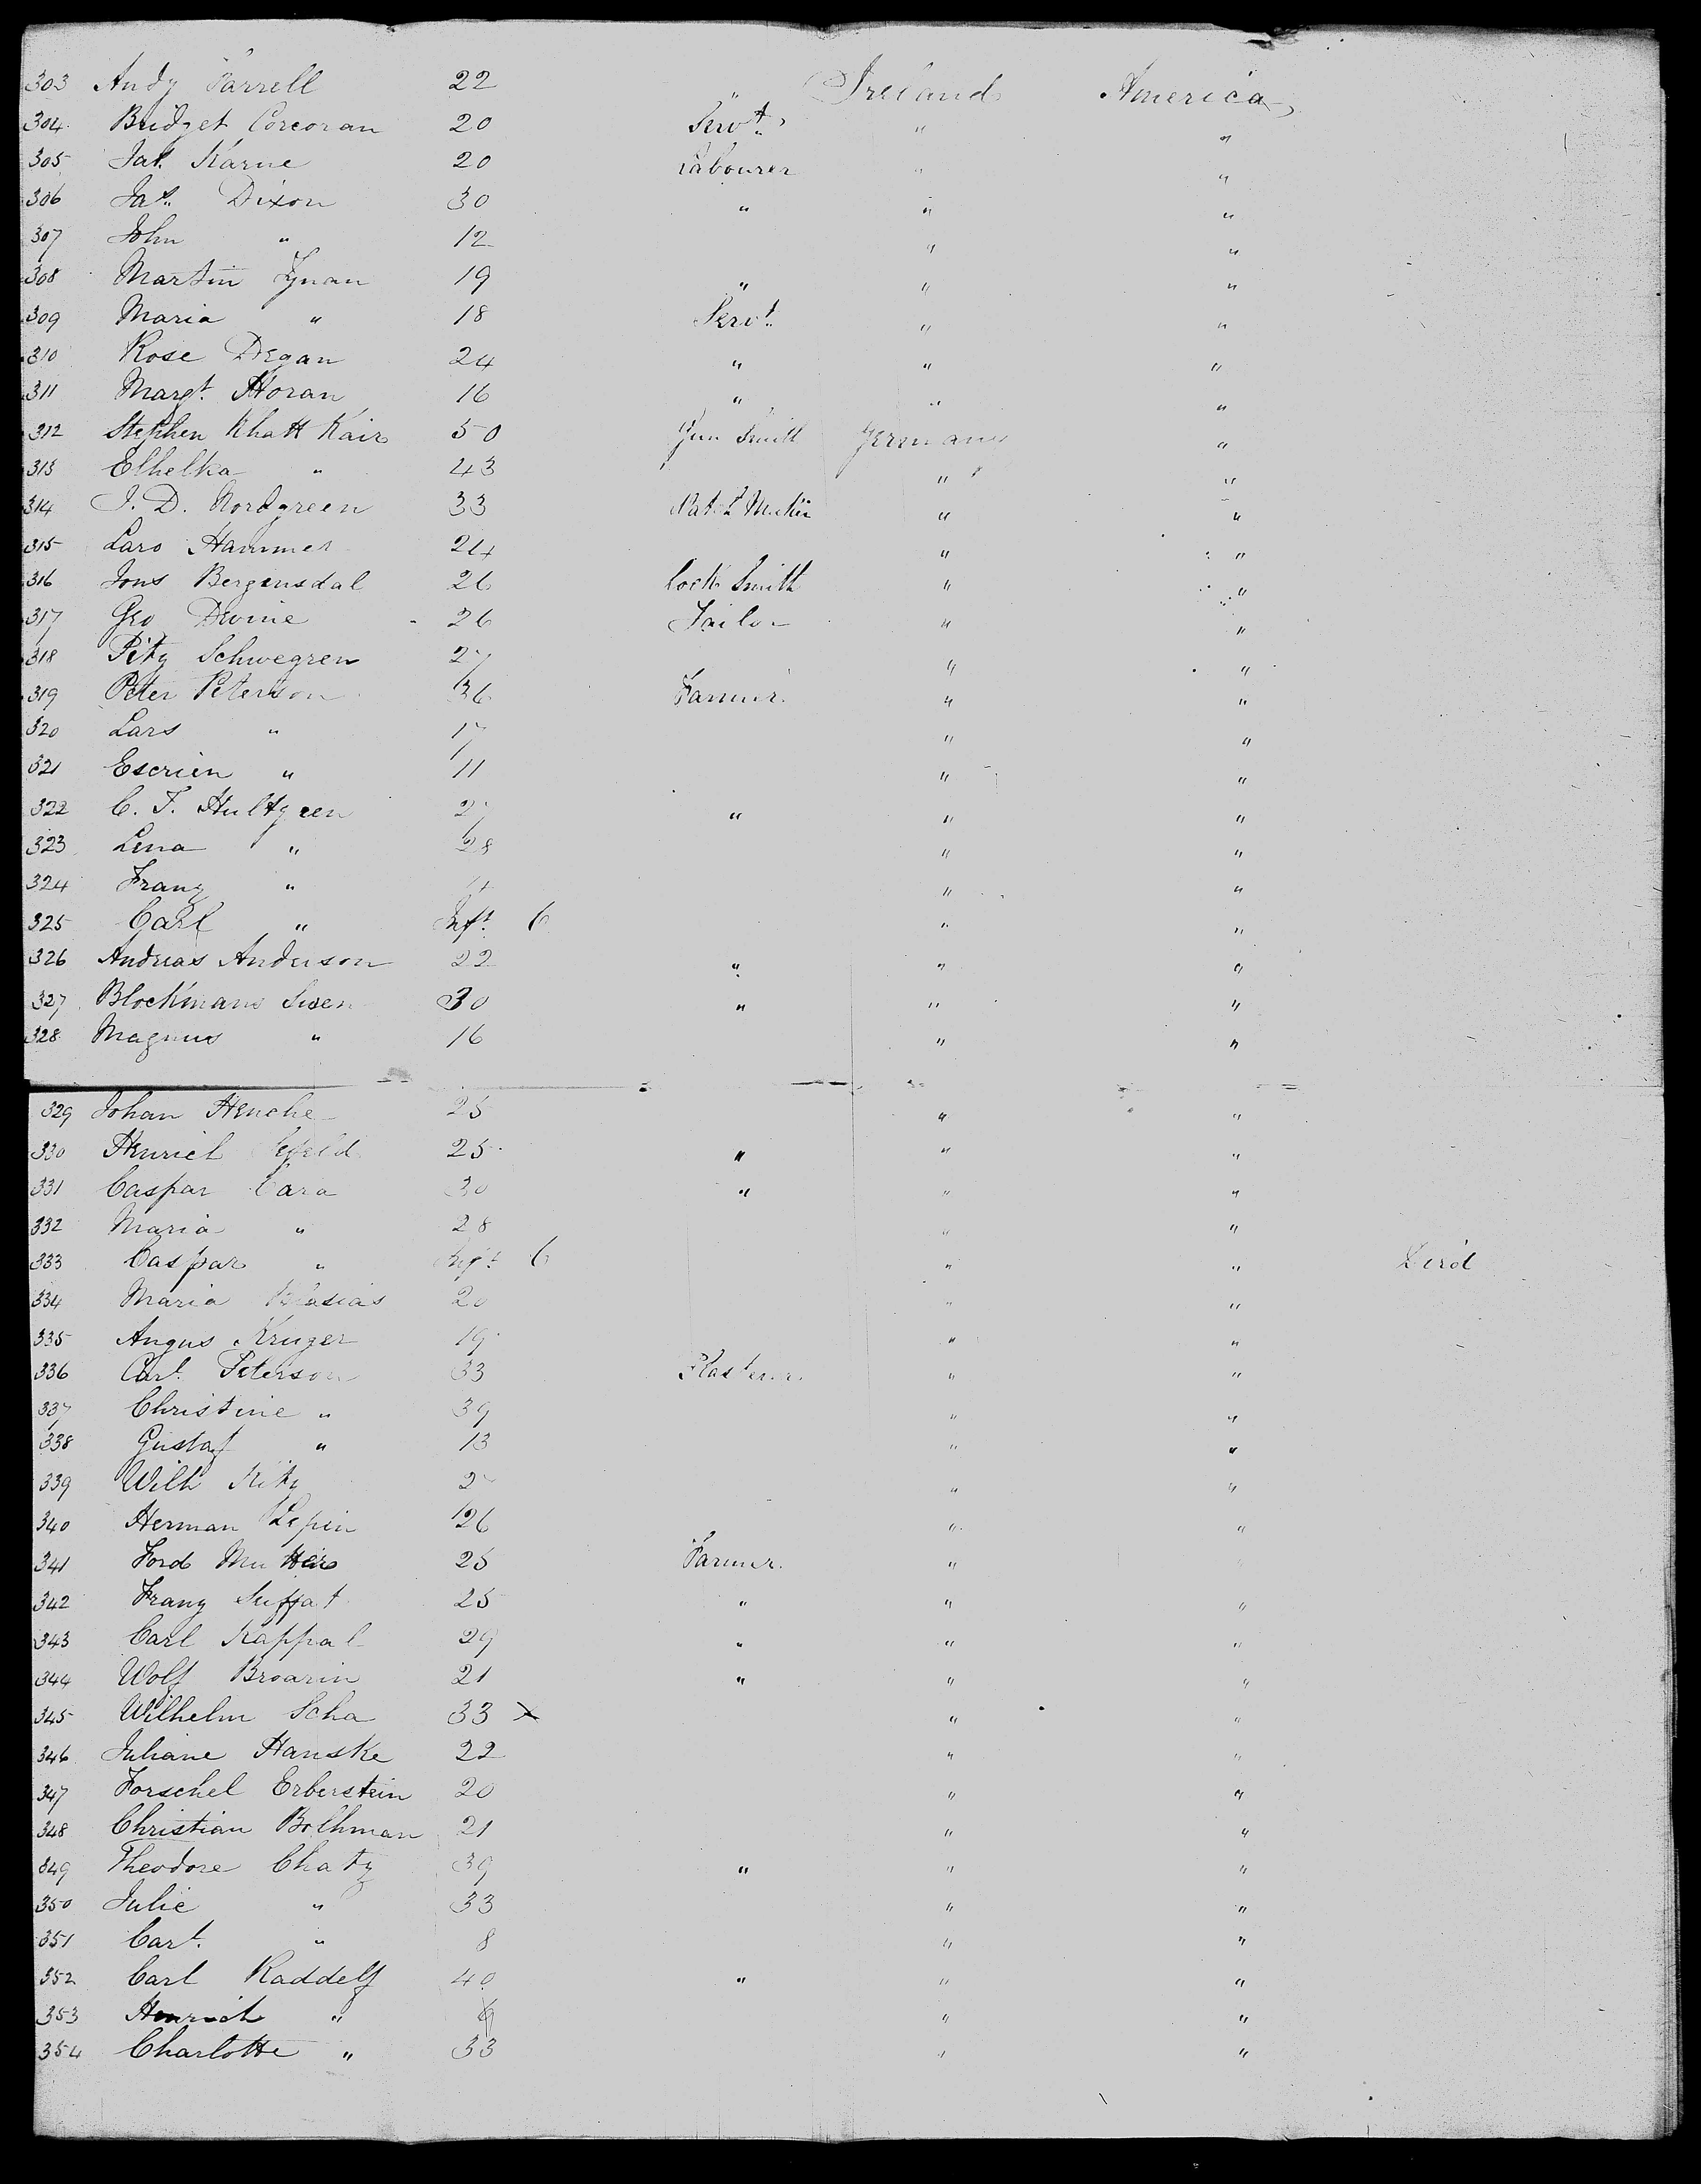 303 Andy Farrell 22 " Ireland America
304 Bridget Corcoran 20 Servt. " "
305 Jas. Karne 20 Labourer " "
306 Jas. Dixon 30 " " "
307 John " 12 " "
308 Martin Lynan 19 " " "
309 Maria " 18 Servt. " "
310 Rose Degan 24 " " "
311 Margt. Horan 16 " " "
312 Stephen Khatt Kair 50 Gun Smith Germany "
313 Ethelka " 43 " "
314 J. D. Nordgreen 33 " "
315 Lars Hammer 24 " "
316 Jons Bergensdal 26 Lock Smith " "
317 Geo Devine 26 Tailor " "
318 Pitz Schwegren 27 " "
319 Peter Peterson 36 Farmer " "
320 Lars " 17 " "
321 Escrien " 11 " "
322 C. F. Hultgreen 27 " " "
323 Lena " 28 " "
324 Franz " " "
325 Carl " Inft. 6 " "
326 Andreas Anderson 22 " " "
327 Blockmans Swen 30 " " "
328 Magnus " 16 " "
329 Johan Henche 25 " "
330 Henrich 25 " " "
331 Caspar Cara 30 " " "
332 Maria " 28 " "
333 Caspar " Inft. 6 " " Died
334 Maria 20 " "
335 Angus Kruger 19 " "
336 Carl Peterson 33 Plasterer " "
337 Christine " 39 " "
338 Gustaf " 13 " "
339 Wilh Kitz 27 " "
340 Herman Lepin 26 " "
341 Ford Mutter 25 Farmer " "
342 Franz Suffat 25 " " "
343 Carl Kappal 29 " " "
344 Wolf Broarin 21 " " "
345 Wilhelm Scha 33 x " "
346 Juliane Hanske 22 " "
347 Forschel Erberstein 20 " "
348 Christian Bolhman 21 " "
349 Theodore Chatz 39 " " "
350 Julie " 33 " "
351 Carl " 8 " "
352 Carl Raddelf 40 " " "
353 Henrich " 9 " "
354 Charlotte " 33 " "